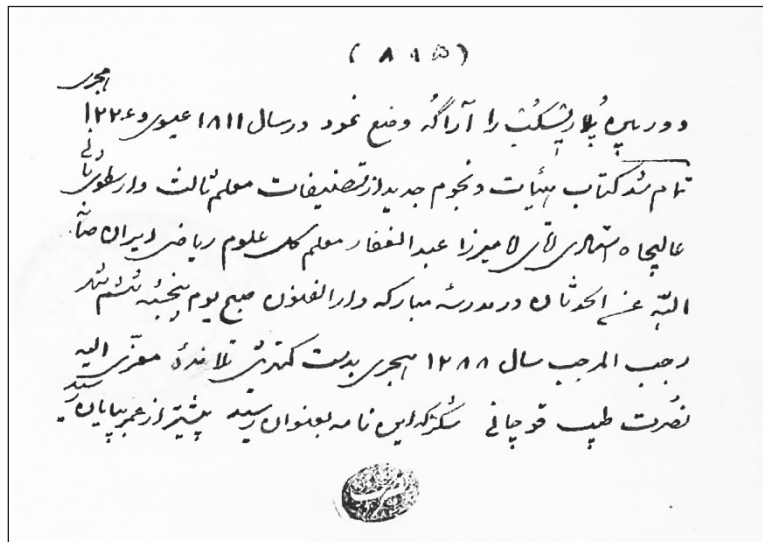 (۸۹۵)
و دوربین پلاریسکپ را آراگُه وضع نمود در سال ۱۸۱۱ عیسوی و ۱۲۲۶ هجری
تمام شد کتاب هیئات و نجوم جدید از تصنیفات معلم ثالث و ارسطوی ثانی
عالیجاه استادی آقای میرزا عبدالغفار معلم کل علوم ریاضی ایران صانه
الله عن الحدثان در مدرسه مبارکه دارالفنون صبح یوم پنجشنبه ششم شهر
رجب المرجب سال ۱۲۸۸ هجری بدست کمترین تلامذهٔ معزّی الیه
نصرت طبیب قوچانی شکر که این نامه بعنوان رسید پیشتر از عمر بپایان رسید